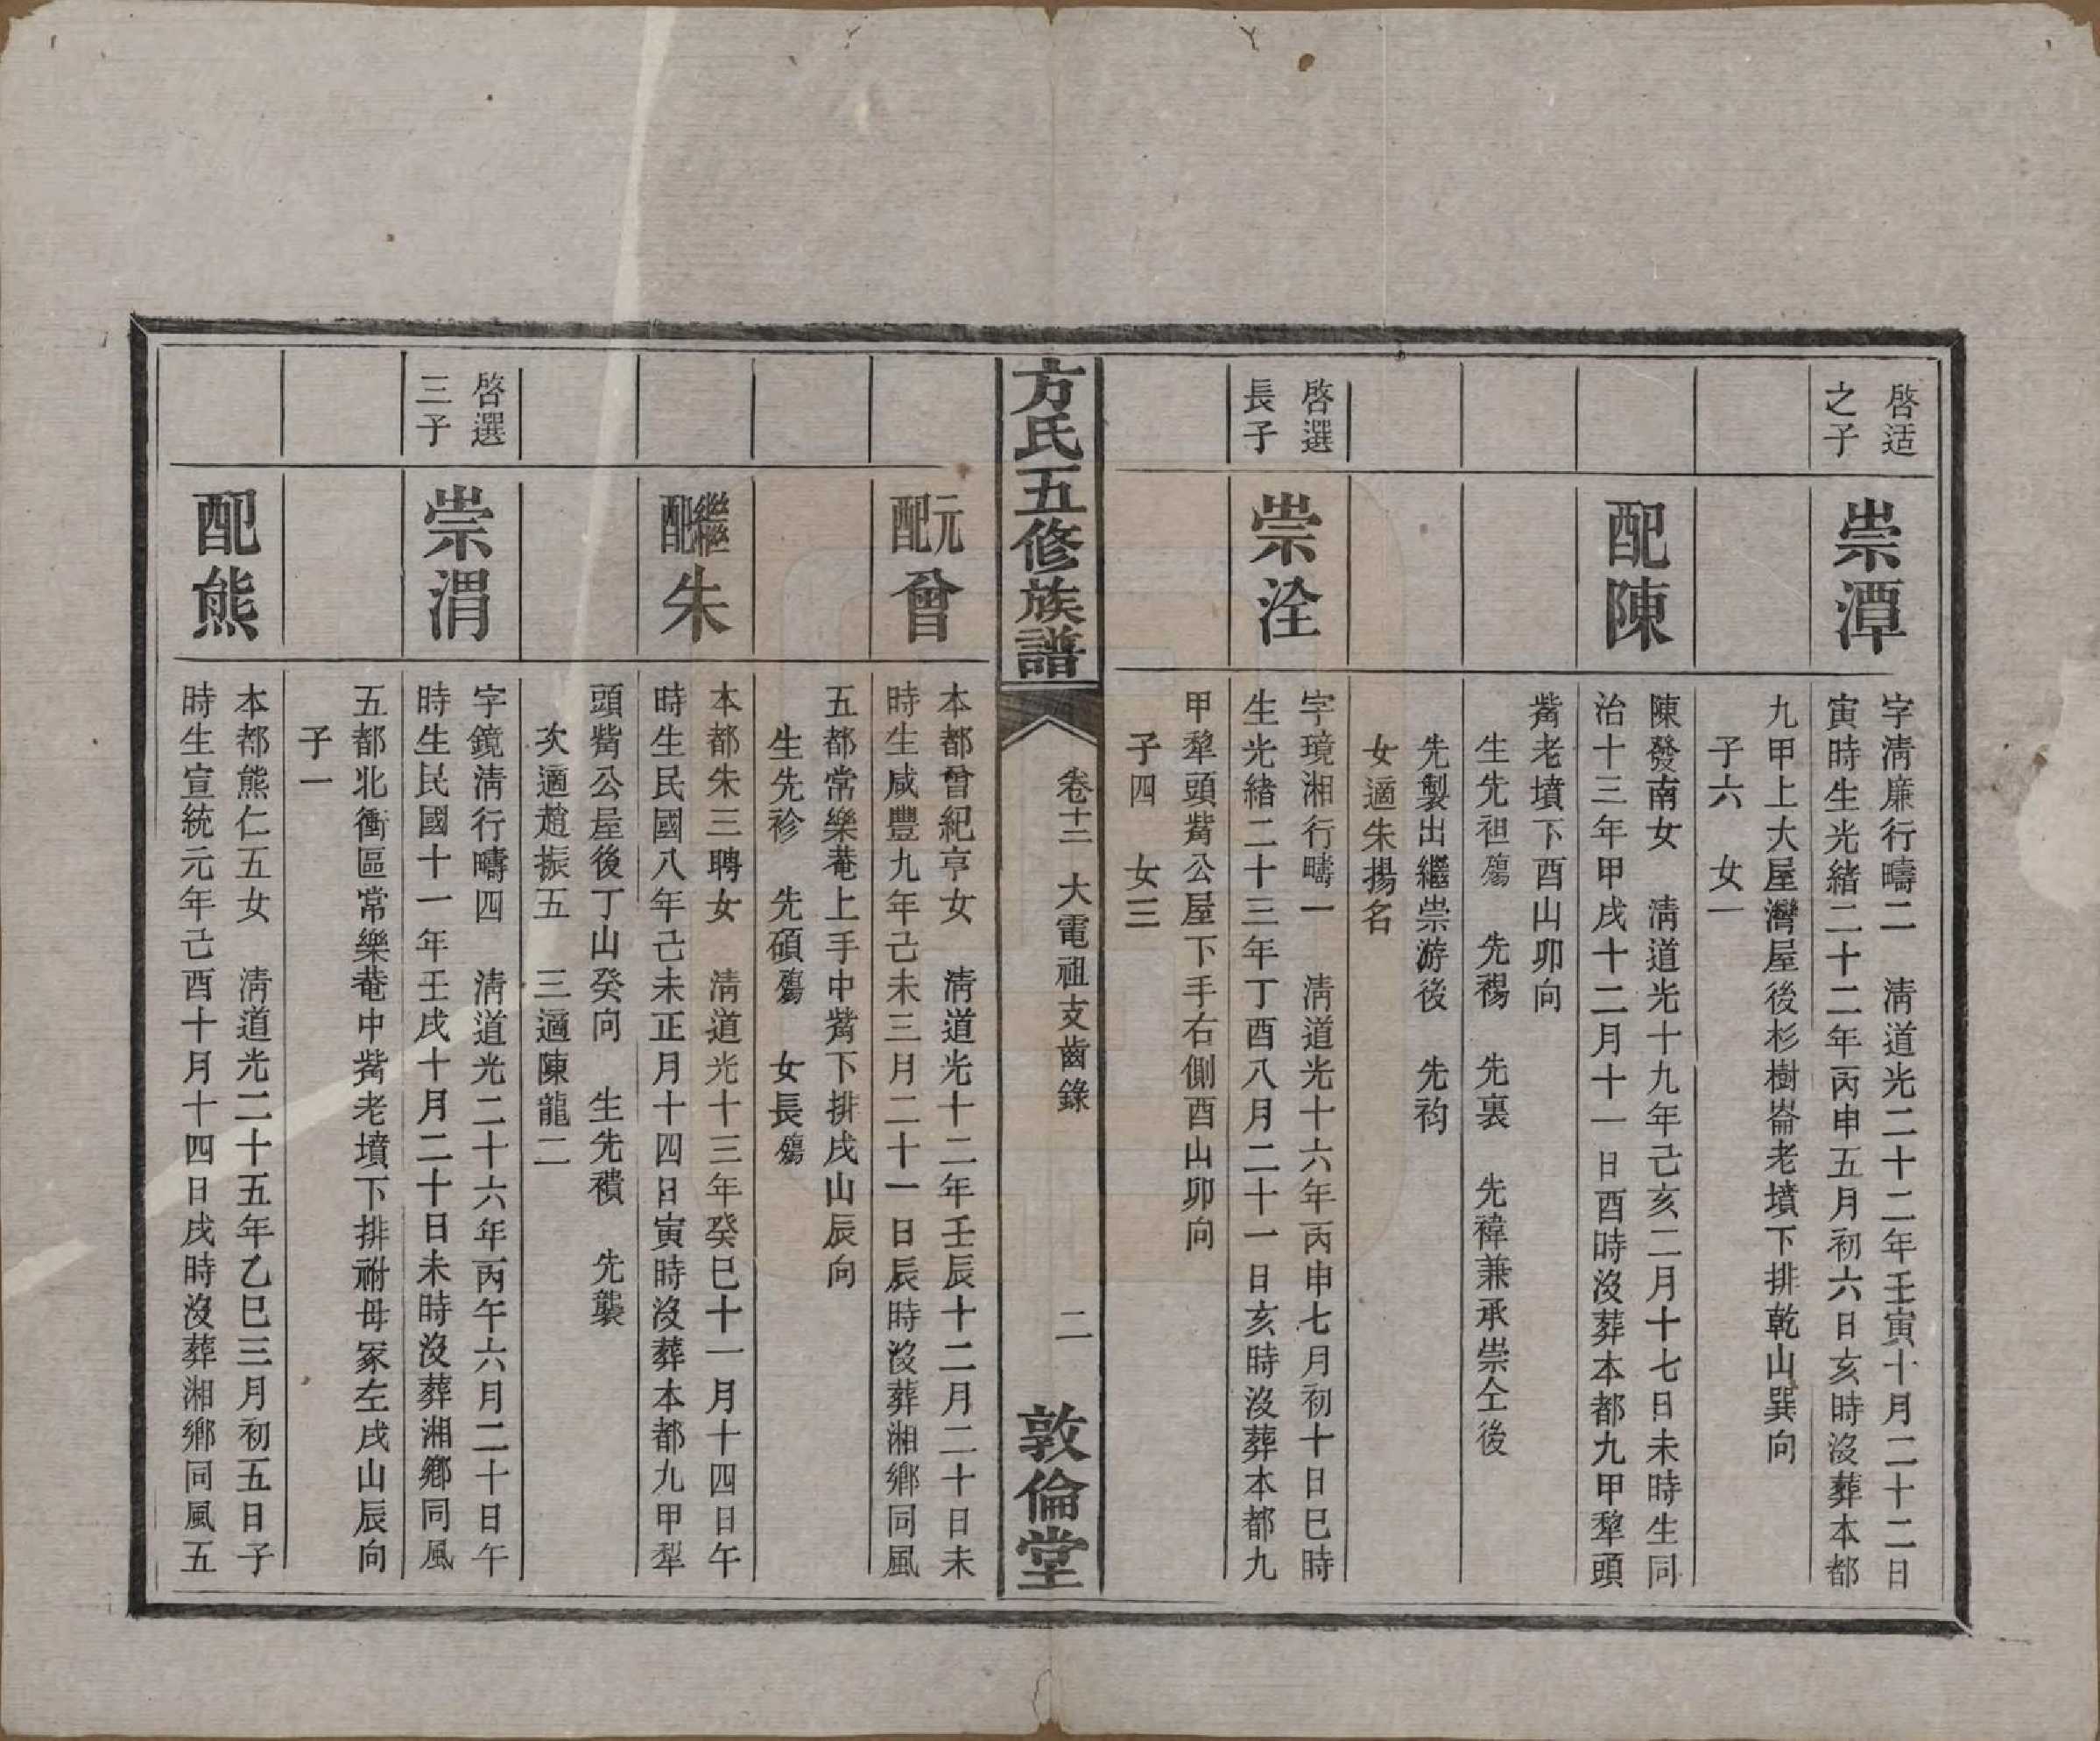 啓适
之子
崇潭
字淸廉行疇二　淸道光二十二年壬寅十月二十二日
寅時生光緒二十二年丙申五月初六日亥時沒葬本都
九甲上大屋灣屋後杉樹崙老墳下排乾山巽向
子六　女一
配陳
陳發南女　淸道光十九年己亥二月十七日未時生同
治十三年甲戌十二月十一日酉時沒葬本都九甲犂頭
觜老墳下酉山卯向
生先袒殤　先裼　先裏　先褘兼承崇仝後
先製出繼崇游後　先袀
女適朱揚名
啓選
長子
崇洤
字璄湘行疇一　淸道光十六年丙申七月初十日巳時
生光緒二十三年丁酉八月二十一日亥時沒葬本都九
甲犂頭觜公屋下手右側酉山卯向
子四　女三
方氏五修族譜
卷十二　大電祖支齒錄
二
敦倫堂
元配曾
本都曾紀亨女　淸道光十二年壬辰十二月二十日未
時生咸豐九年己未三月二十一日辰時沒葬湘鄉同風
五都常樂菴上手中觜下排戌山辰向
生先袗　先碩殤　女長殤
繼配朱
本都朱三聘女　淸道光十三年癸巳十一月十四日午
時生民國八年己未正月十四日寅時沒葬本都九甲犁
頭觜公屋後丁山癸向　生先襀　先襲
次適趙振五　三適陳龍二
啓選
三子
崇渭
字鏡淸行疇四　淸道光二十六年丙午六月二十日午
時生民國十一年壬戌十月二十日未時沒葬湘鄉同風
五都北衝區常樂菴中觜老墳下排祔母冢左戌山辰向
子一
配熊
本都熊仁五女　淸道光二十五年乙巳三月初五日子
時生宣統元年己酉十月十四日戌時沒葬湘鄉同風五